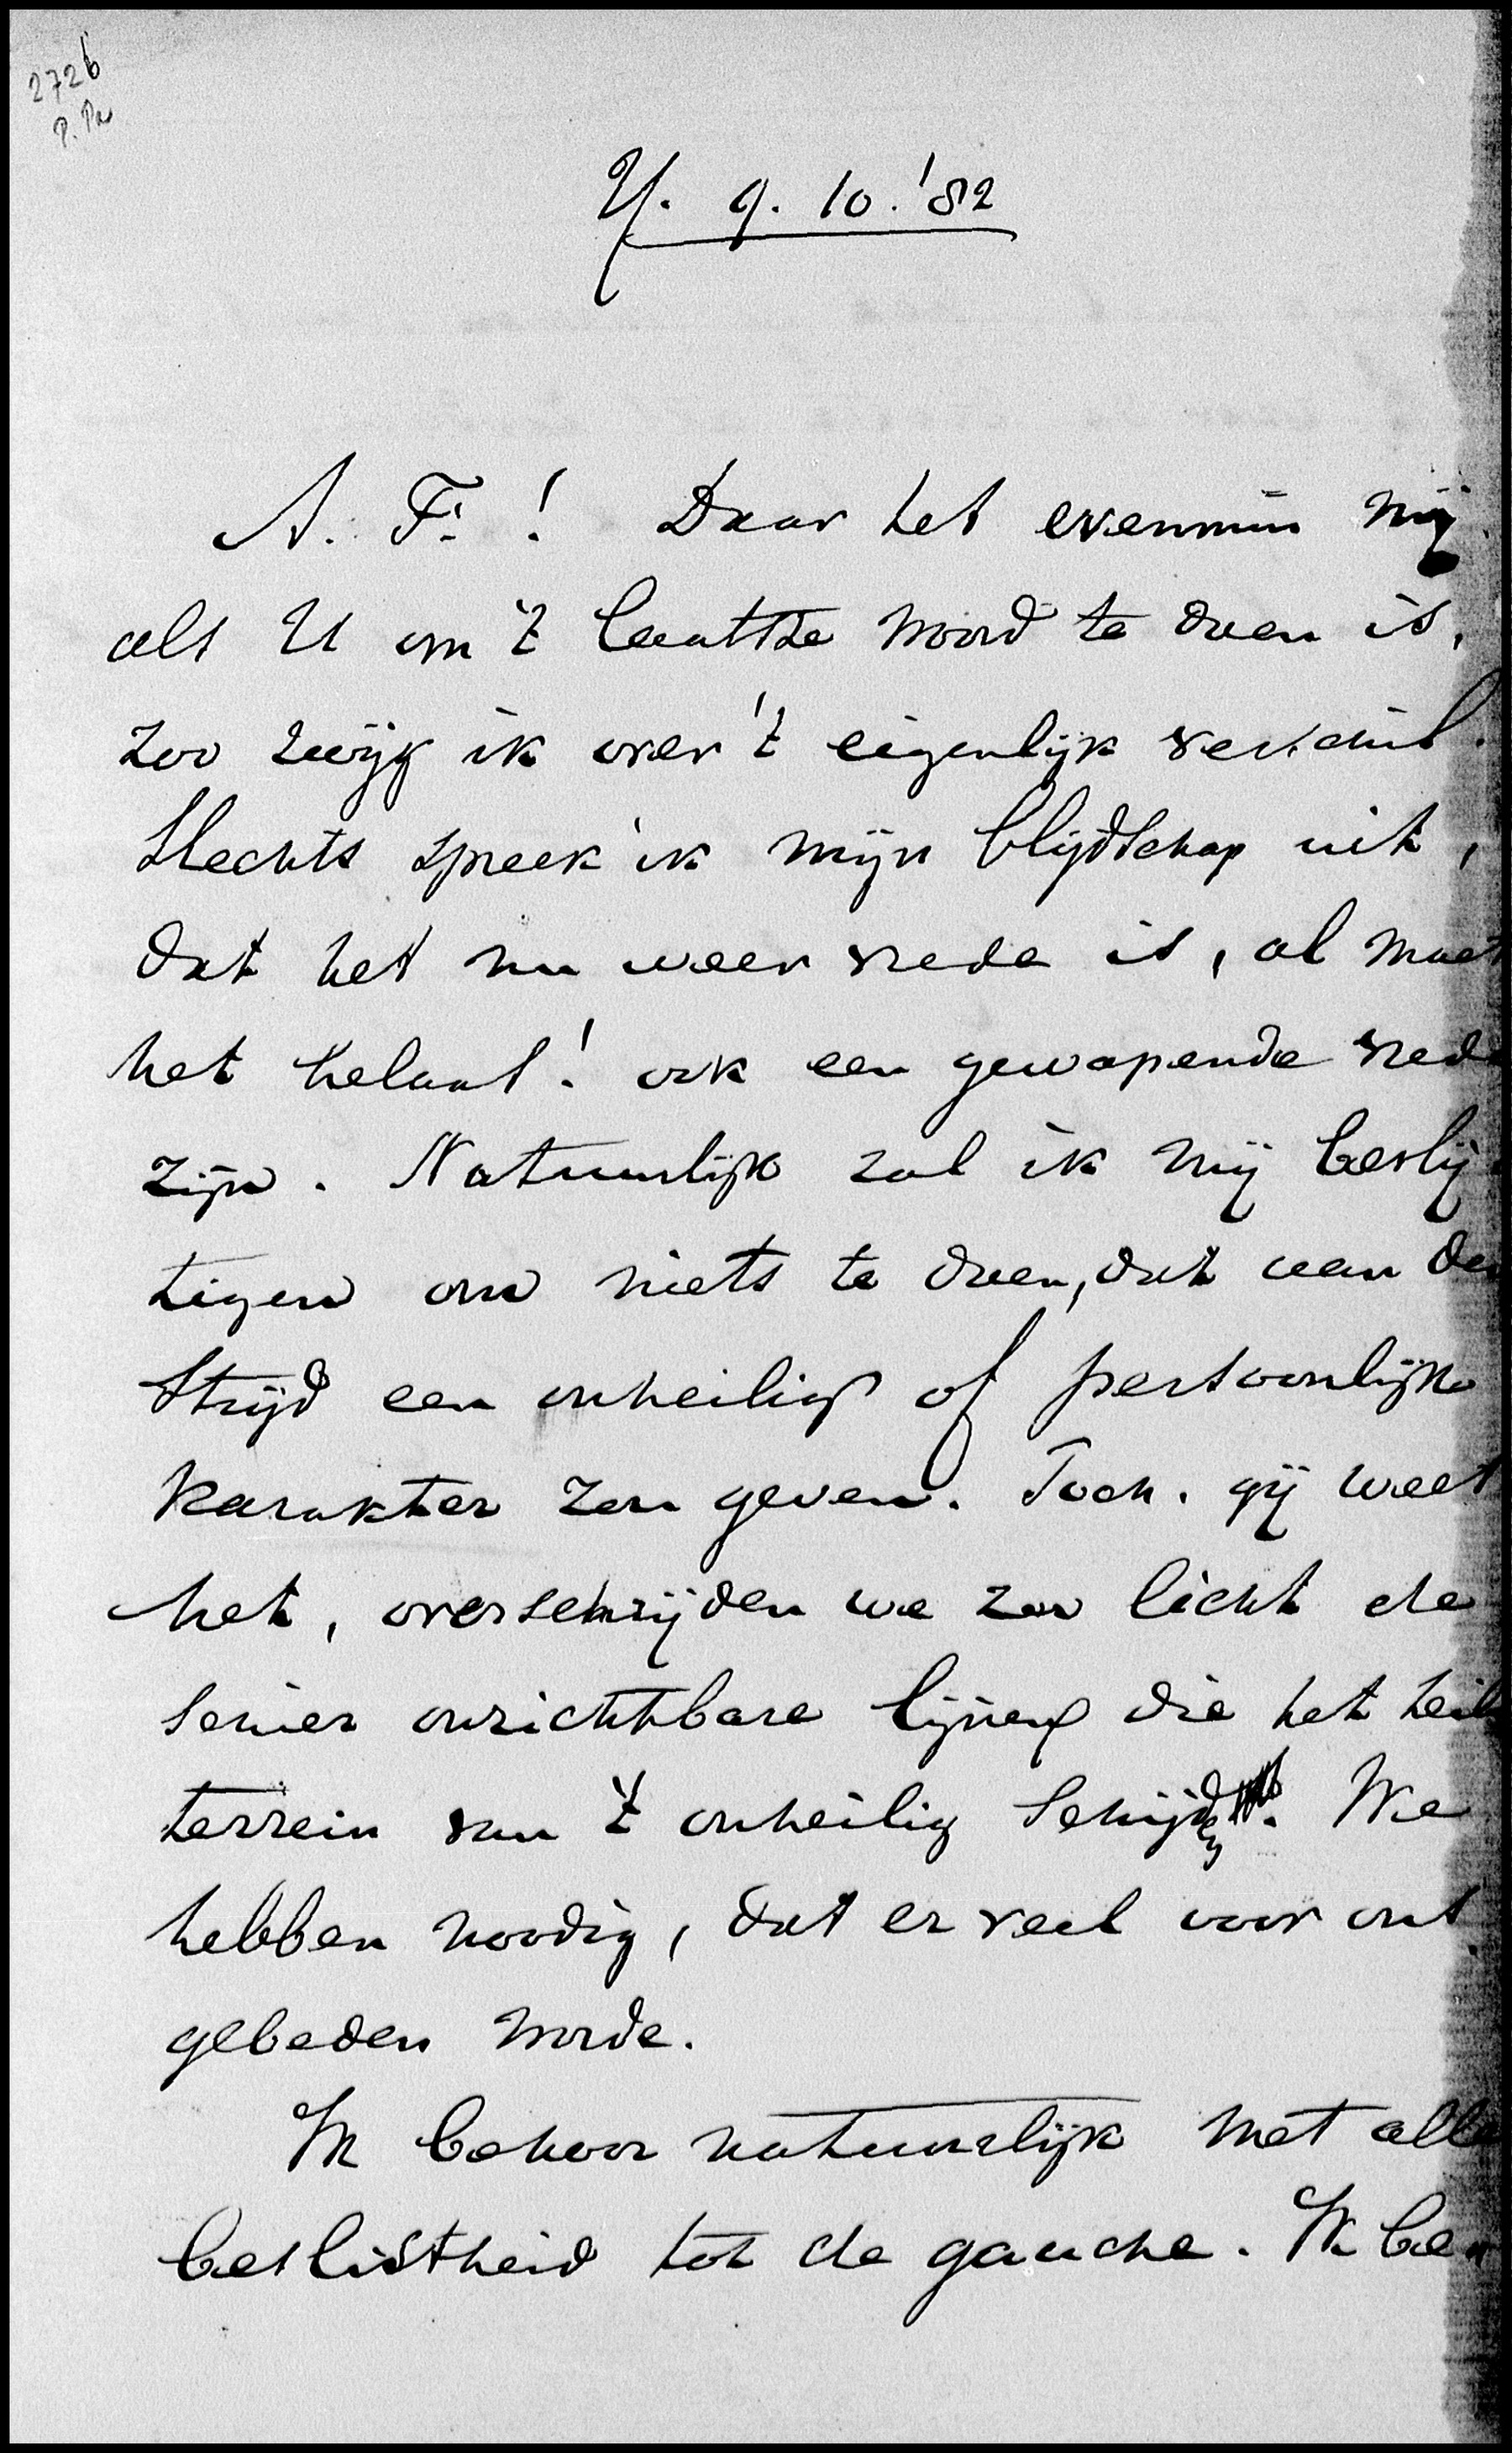 2726
P. Pa
U. 9. 10. '82
A. F.! Daar het evenmin mij
als U om 't laatste woord te doen is,
zoo zwijg ik over 't eigenlijk verschil.
Slechts spreek ik mijn blijdschap uit,
dat het nu weer vrede is, al moet
het helaas! ook een gewapende vrede
zijn. Natuurlijk zal ik mij bevlij-
tigen om niets te doen, dat aan den
strijd een onheilig of persoonlijk
karakter zou geven. Toch, gij weet
het, overschrijden we zoo licht de
onzichtbare lijnen die het heilig
terrein van 't onheilig scheiden. We
hebben noodig, dat er veel voor ons
gebeden worde.
Ik behoor natuurlijk met alle
beslistheid tot de gauche. Ik ben